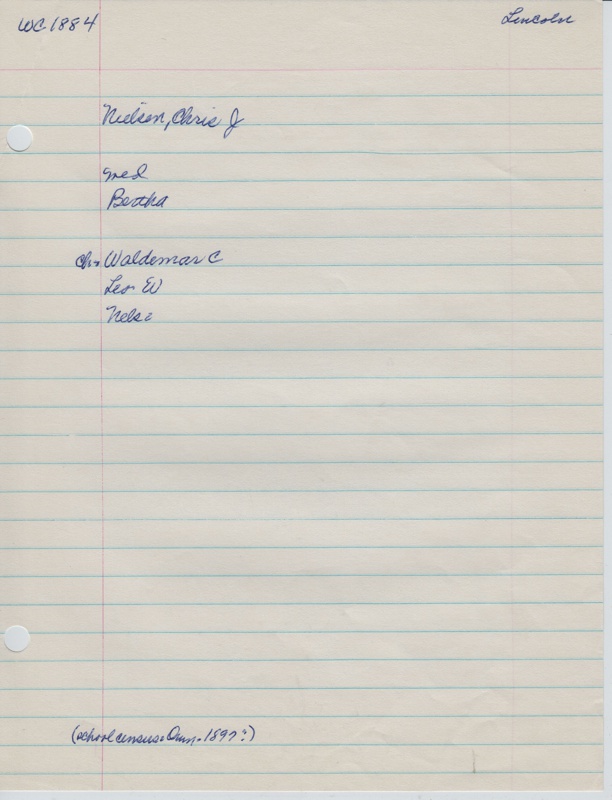 WC 1884
Lincoln
Nielsen, Chris J
med
Bertha
ch- Waldemar C
Leo W
Nels
(school census- 189